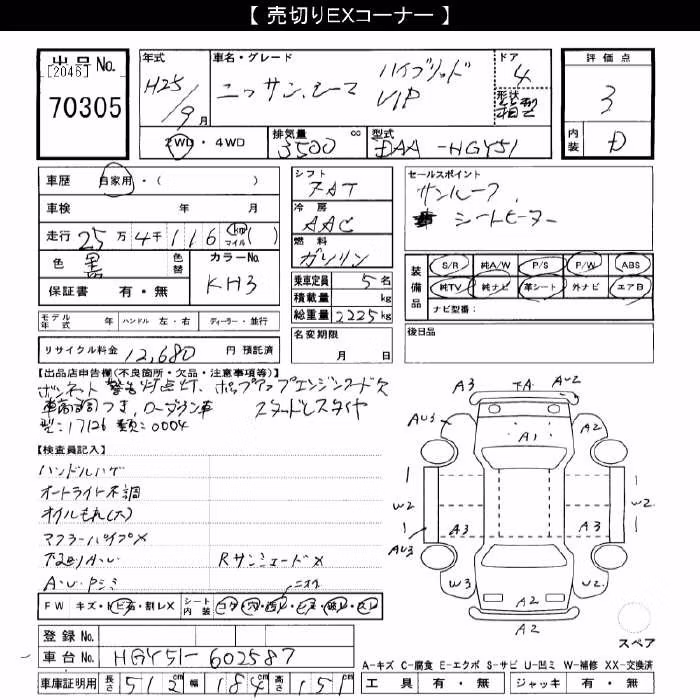 【 売切りEXコーナー 】
出品No.
[2046]
70305
年式
H25/9月
車名・グレード
ニッサン シーマ
ハイブリッド
VIP
ドア
4
形状
箱型
評価点
3
内装
D
2WD・4WD
排気量 cc
3500
型式
DAA-HGY51
車歴 自家用・( )
車検 年 月
走行 25万4千116 km マイル ( )
色 黒
色替
カラーNo.
KH3
保証書 有・無
シフト
FAT
冷房
AAC
燃料
ガソリン
乗車定員 5名
積載量 kg
総重量 2225kg
名変期限
月 日
セールスポイント
サンルーフ
シートヒーター
装備品
S/R 純A/W P/S P/W ABS
純TV 純ナビ 革シート 外ナビ エアB
ナビ型番:
モデル年式 年 ハンドル 左・右 ディーラー・並行
リサイクル料金 12,680 円 預託済
後日品
【出品店申告欄(不良箇所・欠品・注意事項等)】
ボンネット警告灯点灯、ポップアップエンジンフード欠
車高調つき、ローダウン車 スタッドレスタイヤ
型:17126 類:0004
【検査員記入】
ハンドルハゲ
オートライト不調
オイルもれ(大)
マフラーパイプX
下廻りA・U
Rサンシェード X
A・U Pシミ
ニオイ
FW キズ・トビ石・割レX
シート内装 コゲ・穴・汚レ・シミ・破レ・スレ
登録No.
車台No. HGY51-602587
車庫証明用 長さ 512cm 幅 184cm 高さ 151cm
A3 AU2
AU3 A1 A2
W2 W2
A3 A3
AU3
W3 A2 W2
A2
スペア
A-キズ C-腐食 E-エクボ S-サビ U-凹ミ W-補修 XX-交換済
工具 有・無 ジャッキ 有・無